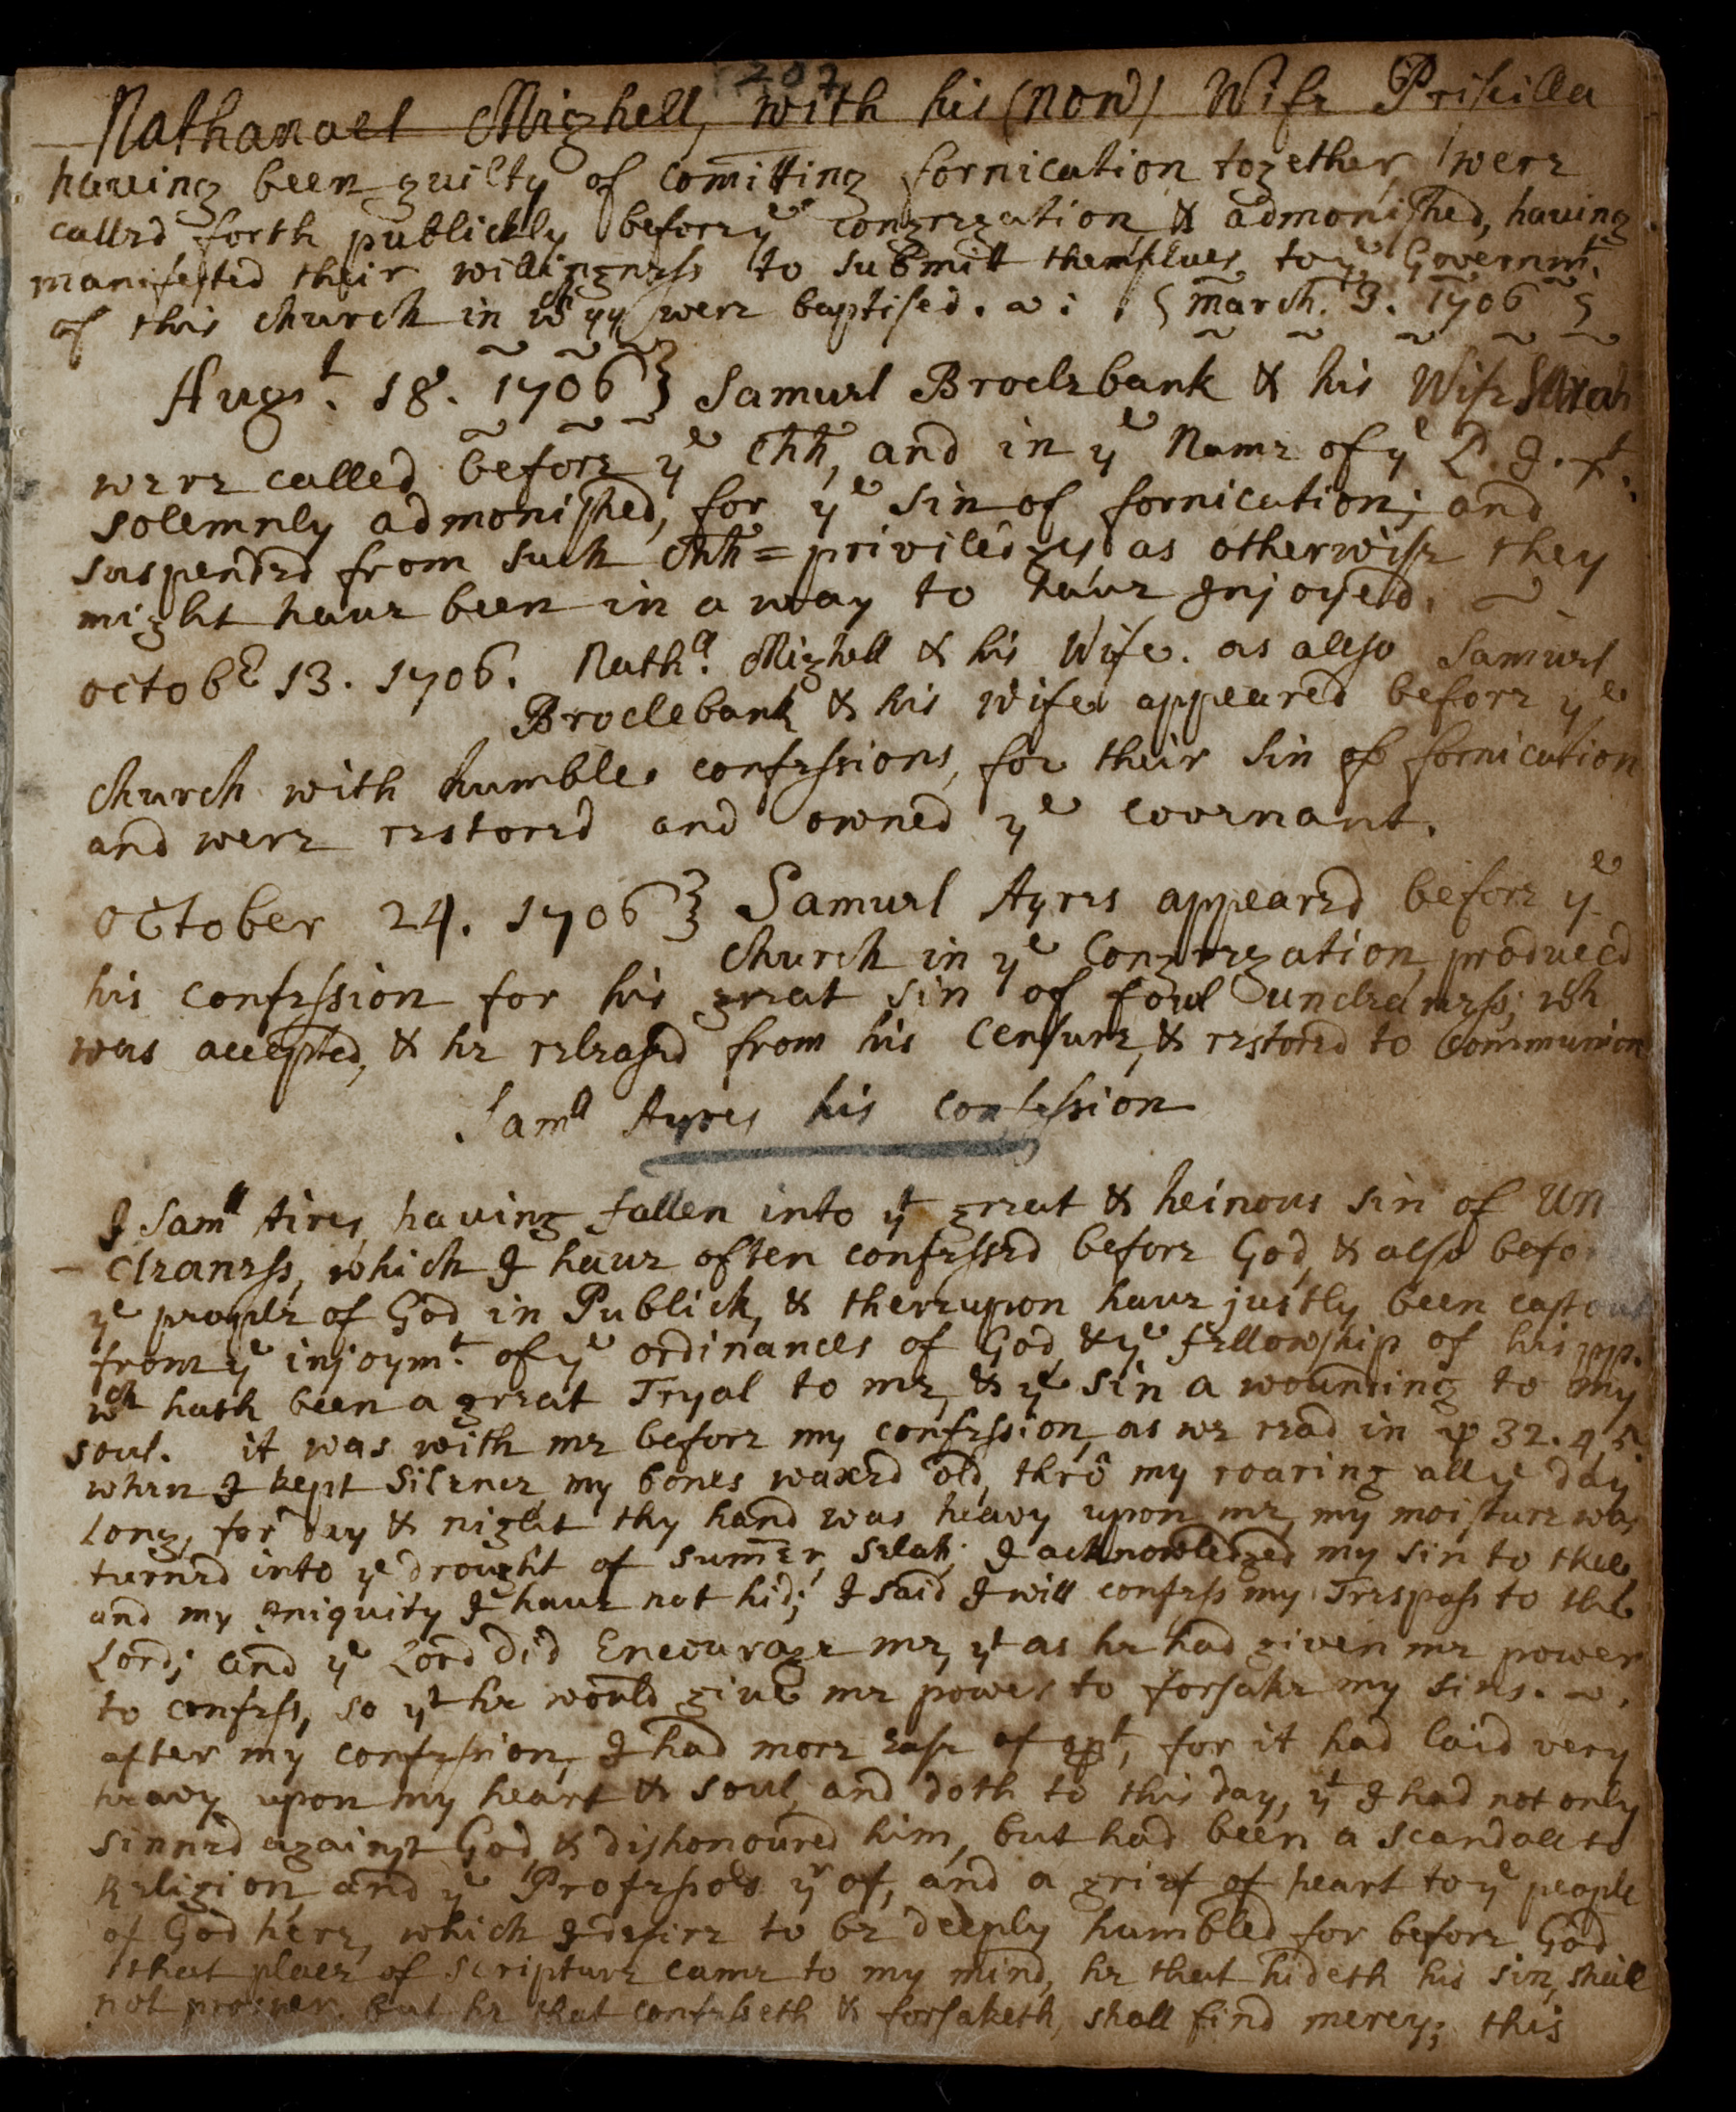 207
Nathanael Mighell, with his (now) Wife Priscilla
having been guilty of comitting fornication together were
called forth publickly before yᵉ congregation & admonished, having
manifested their willingness to submitt themselves to yᵉ Governmᵗ.
of this church in wᶜʰ yy were baptised. ~ : {March. 3. 1706}
Augsᵗ. 18. 1706} Samuel Broclebank & his Wife Sarah
were called before yᵉ Chh, and in yᵉ Name of yᵉ L. J. Xᵗ.
solemnly admonished, for yᵉ sin of fornication; and
suspended from such Chh=priviledges as otherwise they
might have been in a way to have Injoyed. ~
Octobʳ 13. 1706. Nathˡˡ. Mighell & his Wife. as allso Samuel
Broclebank & his wife appeared before yᵉ
church with humble confessions, for their sin of fornication
and were restored and owned yᵉ covenant.
October 24. 1706} Samuel Ayres appeared before yᵉ
church in yᵉ Congregation, produced
his confession for his great sin of foul uncleaness; wh
was accepted, & he released from his Censure, & restored to Communion
Samˡˡ Ayres his confession
I Samˡˡ Aires, having fallen into yᵗ great & heinous sin of Un
cleaness, which I have often confessed before God, & also befo
yᵉ people of God in Publick, & thereupon have justly been cast out
from yᵉ injoymᵗ. of yᵉ ordinances of God & yᵉ fellowship of his pp.
wᶜʰ hath been a great Tryal to me, & yᵉ sin a wounding to my
soul. it was with me before my confession, as we read in ps 32. 4, 5
when I kept Silence my bones waxed old, thrô my roaring all yᵉ day
long, for day & night thy hand was heavy upon me, my moisture was
turned into yᵉ drought of sum̄er, Selah; I acknowledged my sin to thee,
and my Iniquity I have not hid; I said I will confess my Trespass to the
Lord; and yᵉ Lord did Encourage me, yᵗ as he had given me power
to confess, so yᵗ he would give me power to forsake my sins. ~.
after my confession, I had more ease of spᵗ, for it had laid very
heavy upon my heart & soul, and doth to this day, yᵗ I had not only
sinned against God, & dishonoured him, but had been a scandall to
Religion, and yᵉ Professors yʳ of, and a grief of heart to yᵉ people
of God here, which I desire to be deeply humbled for before God
that place of scripture came to my mind, he that hideth his sin, shall
not prosper. but he that confesseth & forsaketh, shall find mercy; this